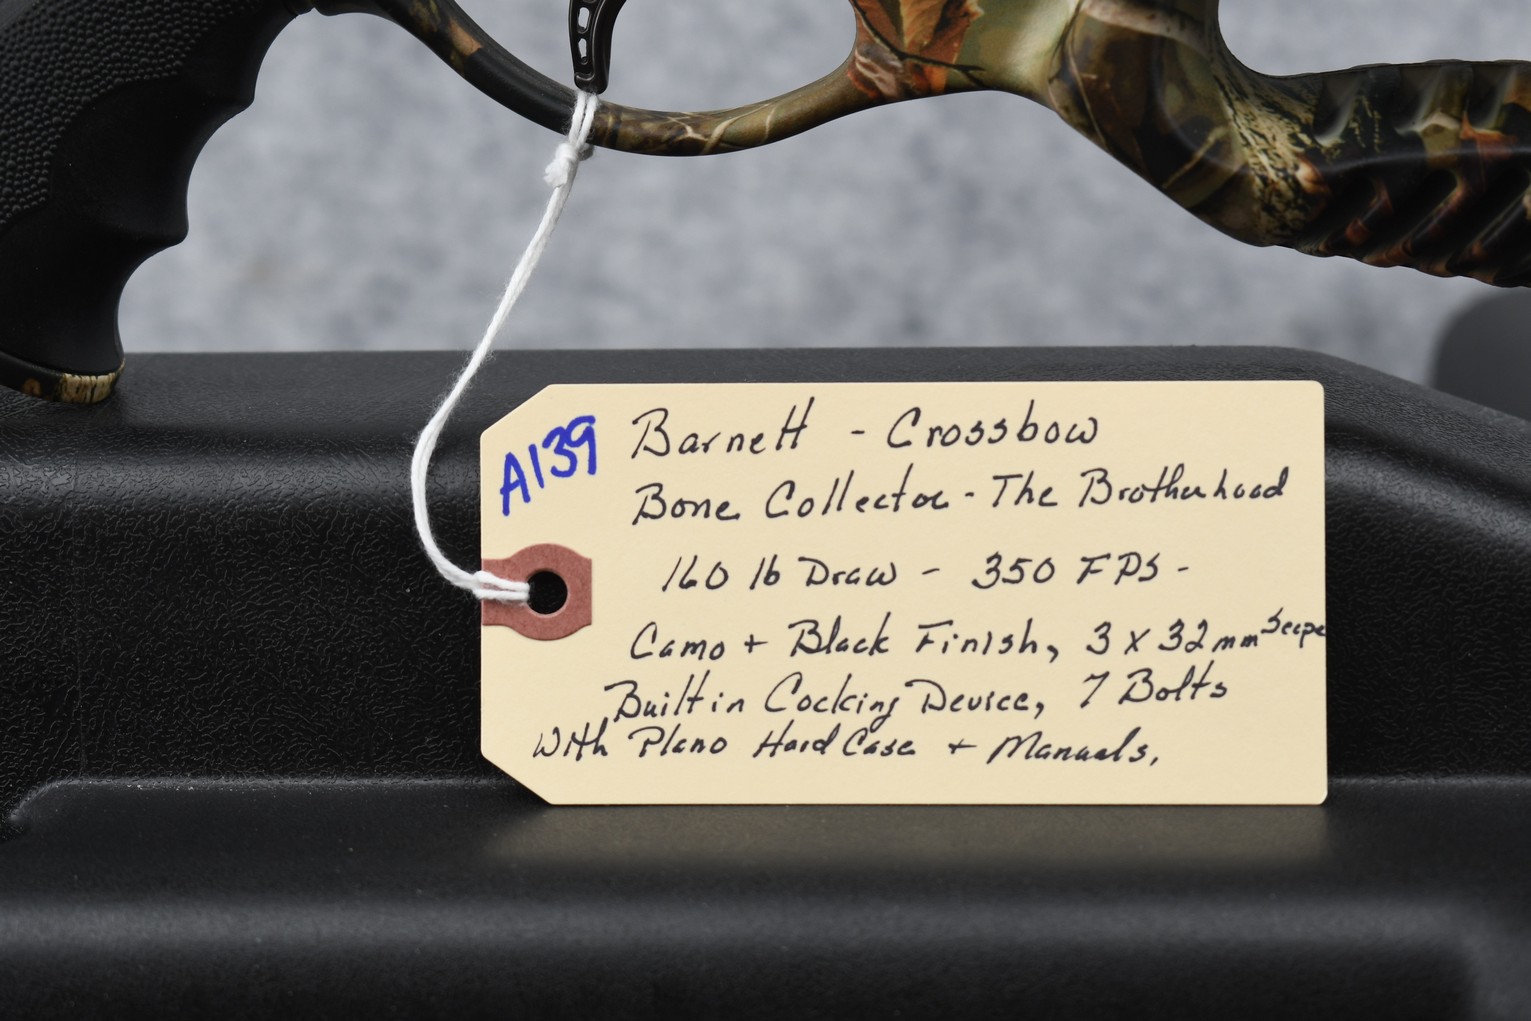 A139
Barnett - Crossbow
Bone Collector - The Brotherhood
160 lb Draw - 350 FPS -
Camo + Black Finish, 3 x 32mm Scope
Built in Cocking Device, 7 Bolts
With Plano Hard Case + Manuals.